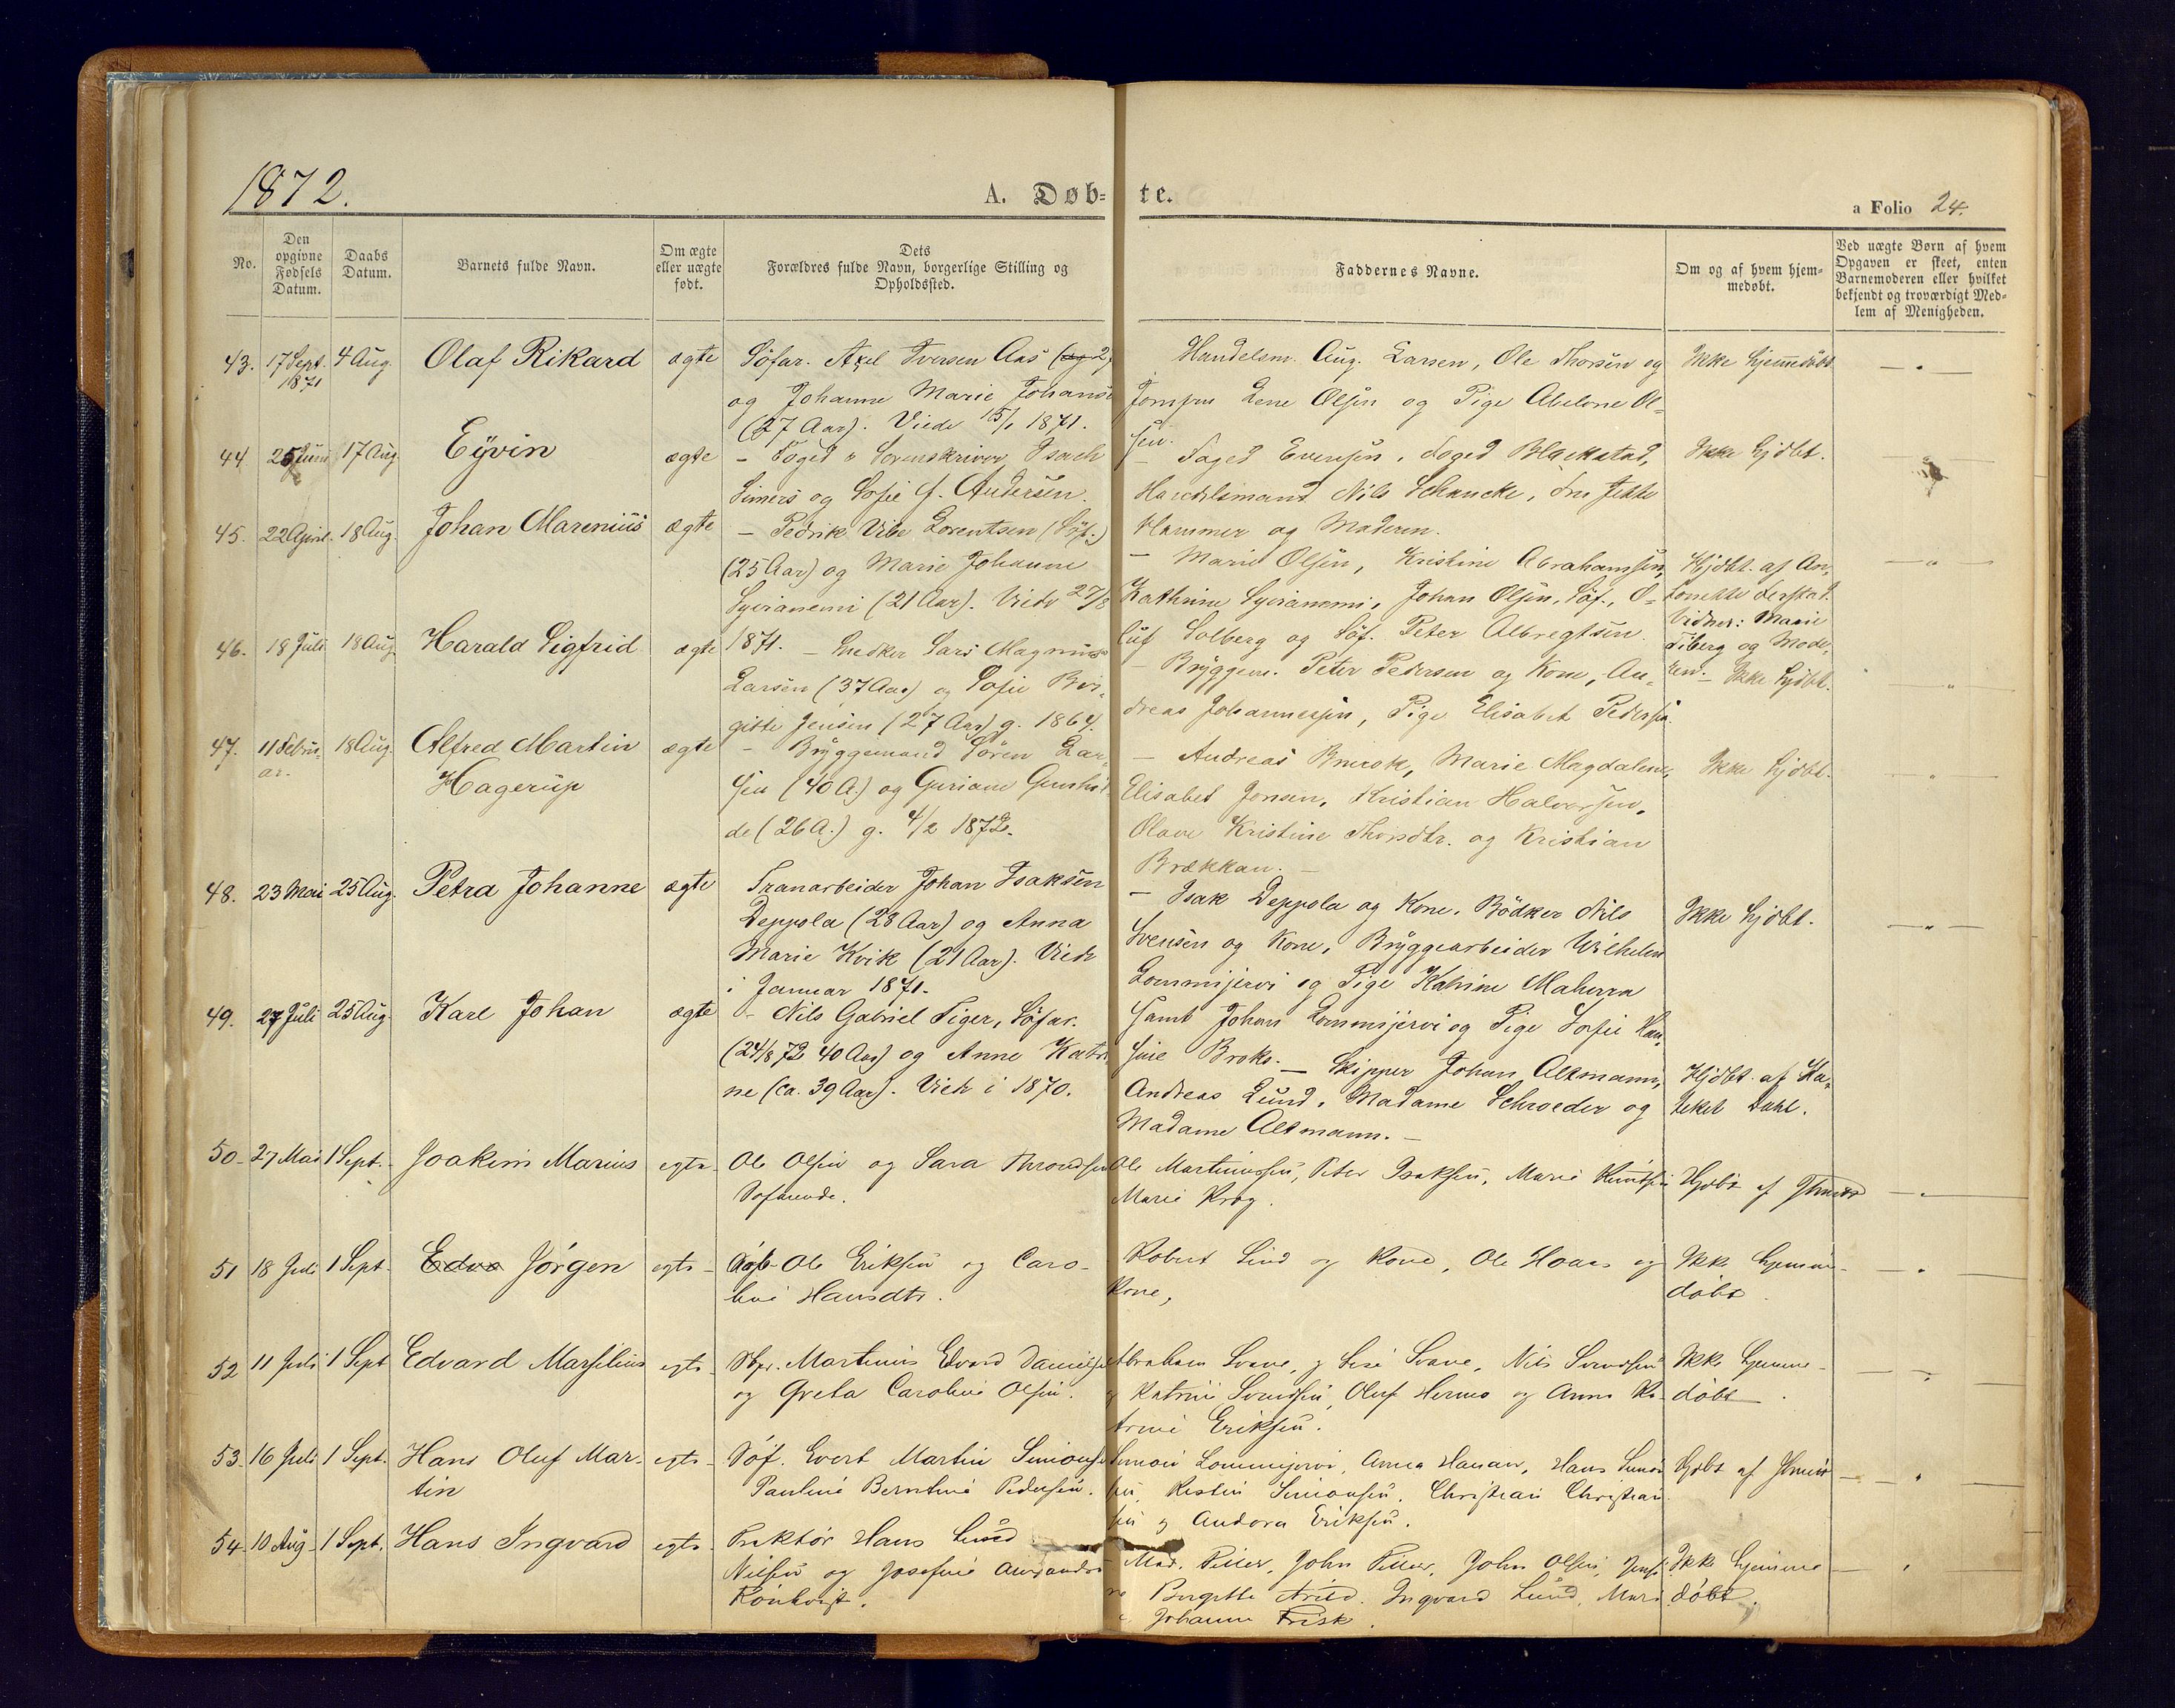 1872.
A. Døb-
te.
a Folio 24.
No.
Den
opgivne
Fødsels
Datum.
Daabs
Datum.
Barnets fulde Navn.
Om ægte
eller uægte
født.
Dets
Forældres fulde Navn, borgerlige Stilling og
Opholdssted.
Faddernes Navne.
Om og af hvem hjem-
medøbt.
Ved uægte Børn af hvem
Opgaven er skeet, enten
Barnemoderen eller hvilket
bekjendt og troværdigt Med-
lem af Menigheden.
43. 17 Sept. 1871 4 Aug. Olaf Rikard ægte
Söfar. Axel Iversen Aas
og Johanne Marie Johans
(27 Aar). Viede 15/1 1871.
Handelsm. Aug. Larsen, Ole Thorsen og
Jomfru Lene Olsen og Pige Abelone Ol-
sen.
Ikke hjemmedöbt
44 25 Juni 17 Aug Eyvin ægte
- Foged & Sorenskriver Isach
Simers og Sofie f. Andersen.
- Foged Evensen, Foged Blackstad,
Handelsmand Nils Schancke, Fru Jette
Hammer og Moderen.
Ikke hjdbt.
45. 22 April. 18 Aug. Johan Marenius ægte
- Pedrik Vibe Lorentsen (Söf.)
(25 Aar) og Marie Johanne
Syrianemi (21 Aar). Viede 27/8
1871.
- Marie Olsen, Kristine Abrahamsen,
Kathrine Syrianemi, Johan Olsen, Söf., O-
luf Solberg og Söf. Peter Albregtsen.
Hjdbt. af An.
Tonette Derstad.
Vidner: Marie
Tiberg og Mode-
ren.
46. 18 Juli 18 Aug. Harald Sigfrid ægte
- Snedker Lars Magnus
Larsen (37 Aar) og Sofie Bir-
gitte Jensen (27 Aar) g. 1864.
- Bryggem. Peter Pedersen og Kone, An-
dreas Johannesen, Pige Elisabet Pedersen
Ikke hjdbt.
47. 11 Febru-
ar. 18 Aug. Alfred Martin
Hagerup ægte
- Bryggemand Sören Lar-
sen (40 A.) og Guriane Gunhil-
de (26 A.) g. 4/2 1872.
- Andreas Buvok, Marie Magdalene,
Elisabet Jonsen, Kristian Halvorsen,
Olave Kristine Thorsdtr. og Kristian
Brækkan. -
Ikke hjdbt.
48. 23 Mai 25 Aug. Petra Johanne ægte
Tranarbeider Johan Isaksen
Deppola (28 Aar) og Anna
Marie Kvik (21 Aar). Viede
i Januar 1871.
- Isak Deppola og Kone, Bödker Nils
Svensen og Kone, Bryggearbeider Wilhelm
Lommijervi og Pige Katrine Maherra
samt Johan Lommijervi og Pige Sofie Han-
sine Broks.
Ikke hjdbt.
49. 27 Juli 25 Aug. Karl Johan ægte
- Nils Gabriel Figer, Söfar.
(24/8 72 40 Aar) og Anne Katri
ne (ca. 39 Aar). Viede i 1870.
- Skipper Johan Altmann,
Andreas Lund, Madame Schroeder og
Madame Altmann. -
Hjdbt. af Ka-
teket Dahl.
50 27 Mai 1 Sept. Joakim Marius egte
Ole Olsen og Sara Throndsen
Sofarende.
Ole Martinussen, Peter Isaksen, Marie Knudsen
Marie Krog.
Hjdbt af
51 18 Juli 1 Sept Edva Jörgen egte
Söf. Ole Eriksen og Caro-
line Hansdtr.
Robert Lind og Kone, Ole Hoaas og
Kone,
Ikke hjemme-
döbt.
52 11 Juli 1 Sept Edvard Marselius egte
Martinus Edvard Danielsen
og Greta Caroline Olsen.
Abraham Svane, g Lise Svane, Nils Svendsen
og Katrine Svendsen, Oluf Hernes og Anna Ka-
trine Eriksen.
Ikke hjemme-
döbt.
53 16 Juli 1 Sept. Hans Oluf Mar-
tin egte
Söf. Evert Martin Simonsen
Pauline Berntine Pedersen.
Simon Lommijervi, Anna Hanan, Hans Simon
sen, Kristin Simonsen, Christian Christian
sen g Andora Eriksen.
Hjdbt af
54 10 Aug 1 Sept. Hans Ingvard egte
Traktör Hans Lund
Nilsen og Josefine
Rönkvist.
- Mad. Piller, John Piller, John Olsen, Jensi
ne Birgitte Arild, Ingvard Lund, Mari
e Johanne Frisk.
Ikke hjemme
döbt.